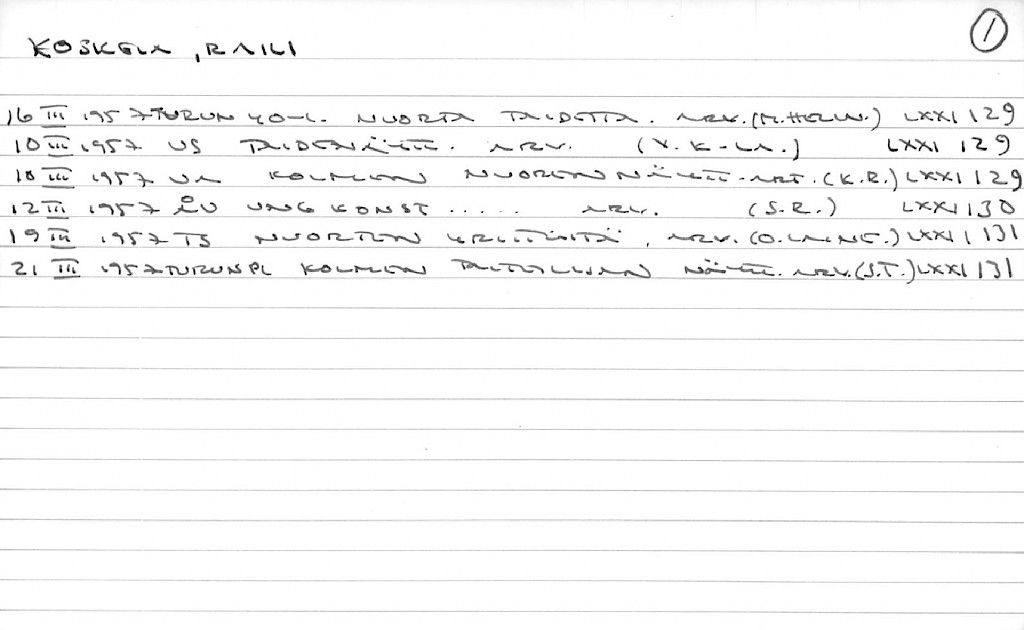 ①
KOSKELA, RAILI
16 III 1957 TURUN YO-L. NUORTA TAIDETTA. ARV. (M. HELM.) LXXI 129
10 III 1957 US TAIDENÄYTT. ARV. (Y. K-LA.) LXXI 129
10 III 1957 UA KOLMEN NUOREN NÄYTT. ART. (K.R.) LXXI 129
12 III 1957 ÅU UNG KONST ..... ARV. (S.R.) LXXI 130
19 III 1957 TS NUORTEN YRITTÄJITÄ, ARV. (O. LAINE.) LXXI 131
21 III 1957 TURUN PL KOLMEN TAITEILIJAN NÄYTT. ARV. (S.T.) LXXI 131